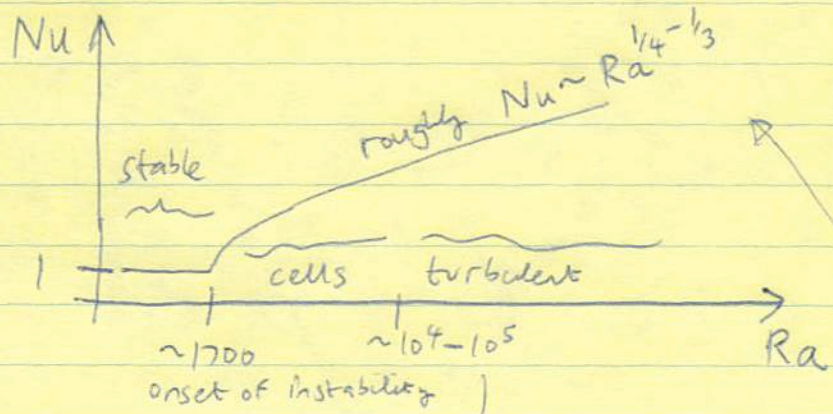 Nu
roughly Nu ~ Ra^1/4-1/3
stable
1
cells turbulent
~1700 ~10^4-10^5
Ra
onset of instability